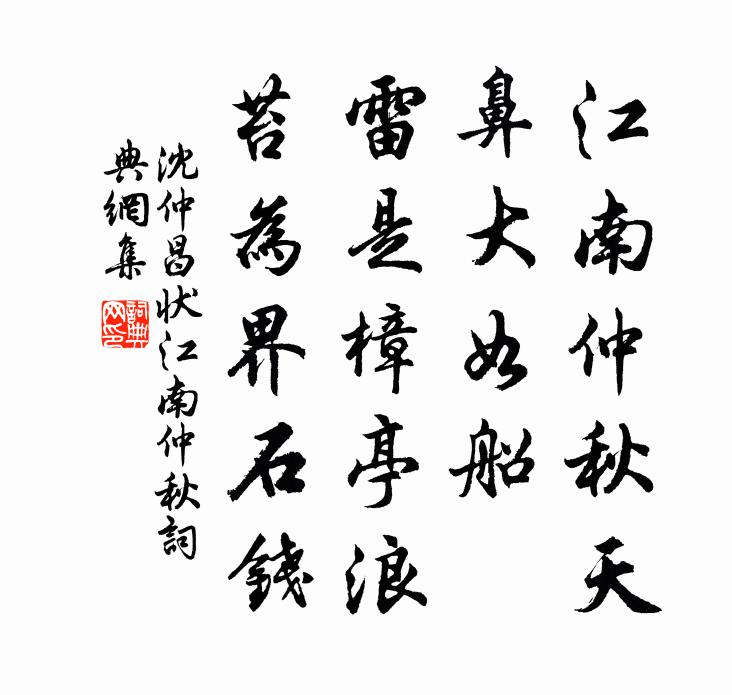 江南仲秋天
鼻大如船
雷是樟亭浪
苔為界石錢
沈仲昌狀江南仲秋詞
典網集
詞典
网印